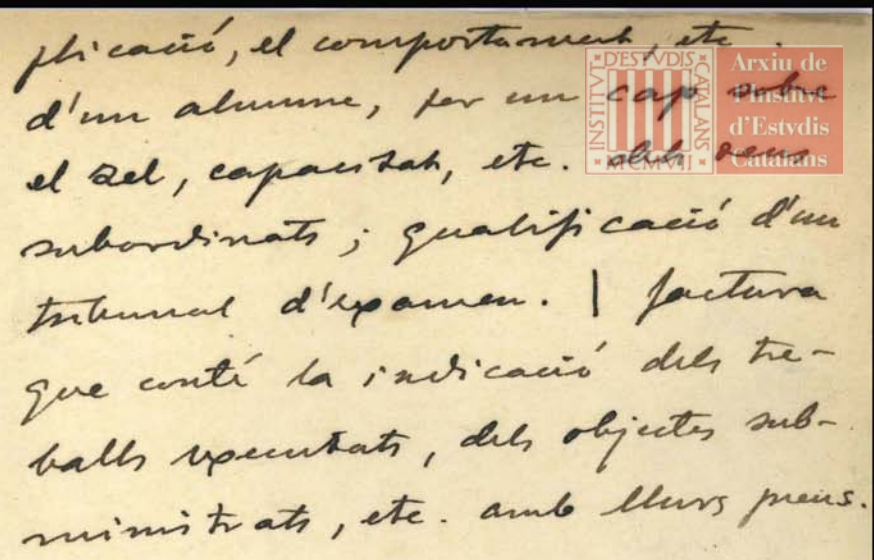 plicació, el comportament, etc.
d'un alumne, per un cap sobre
el zel, capacitat, etc. dels seus
subordinats; qualificació d'un
tribunal d'examen. | factura
que conté la indicació dels tre-
balls executats, dels objectes sub-
ministrats, etc. amb llurs preus.
INSTITVT·D'ESTVDIS·CATALANS·MCMVII
Arxiu de
l'Institvt
d'Estvdis
Catalans